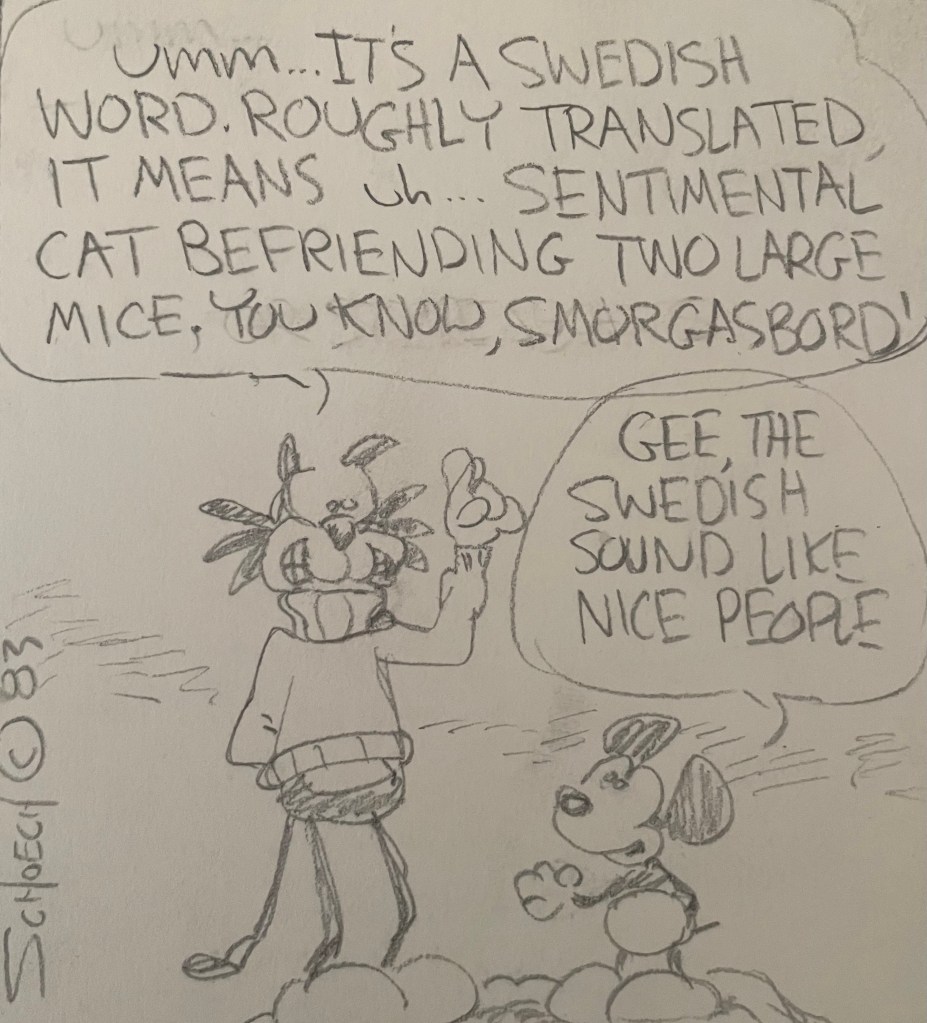 Umm...IT'S A SWEDISH
WORD. ROUGHLY TRANSLATED,
IT MEANS uh... SENTIMENTAL
CAT BEFRIENDING TWO LARGE
MICE. YOU KNOW, SMORGASBORD!
GEE, THE
SWEDISH
SOUND LIKE
NICE PEOPLE
SCHOECH © 83